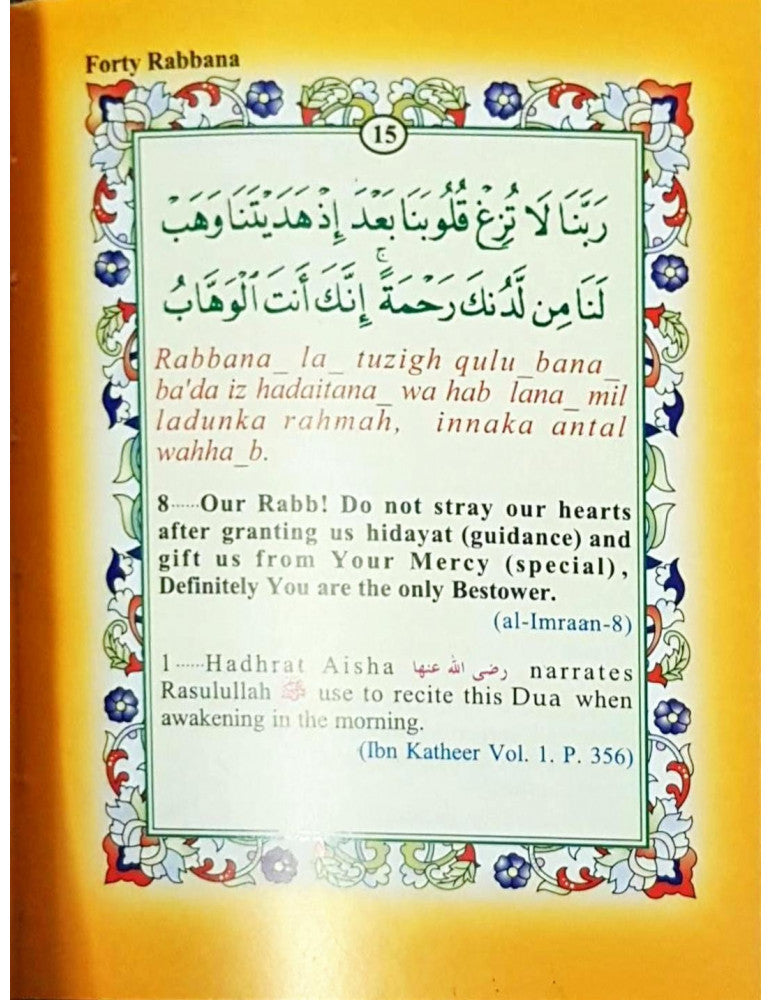 Forty Rabbana
15
رَبَّنَا لَا تُزِغْ قُلُوبَنَا بَعْدَ إِذْ هَدَيْتَنَا وَهَبْ
لَنَا مِن لَّدُنكَ رَحْمَةً ۚ إِنَّكَ أَنتَ الْوَهَّابُ
Rabbana_ la_ tuzigh qulu_bana_
ba'da iz hadaitana_ wa hab lana_ mil
ladunka rahmah, innaka antal
wahha_b.
8......Our Rabb! Do not stray our hearts
after granting us hidayat (guidance) and
gift us from Your Mercy (special),
Definitely You are the only Bestower.
(al-Imraan-8)
1......Hadhrat Aisha رضى الله عنها narrates
Rasulullah ﷺ use to recite this Dua when
awakening in the morning.
(Ibn Katheer Vol. 1. P. 356)